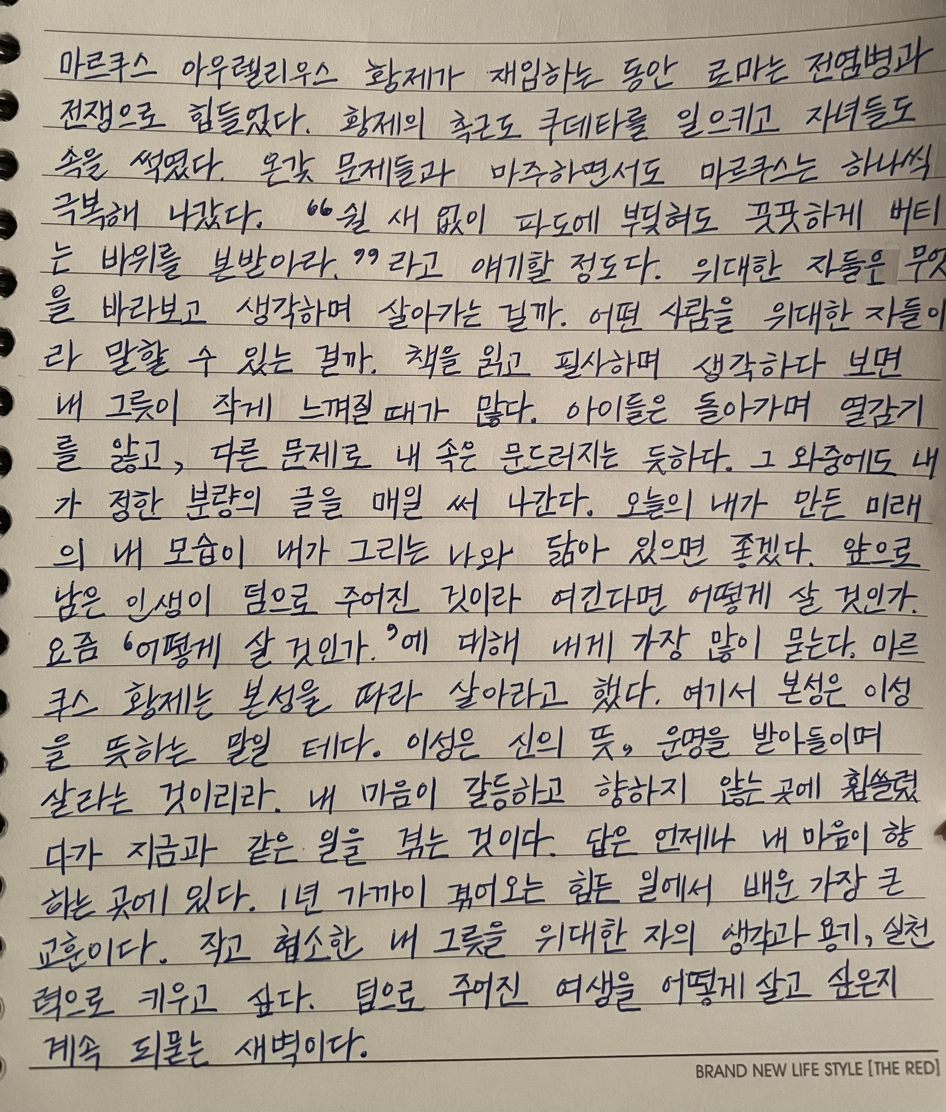 마르쿠스 아우렐리우스 황제가 재임하는 동안 로마는 전염병과
전쟁으로 힘들었다. 황제의 측근도 쿠데타를 일으키고 자녀들도
속을 썩였다. 온갖 문제들과 마주하면서도 마르쿠스는 하나씩
극복해 나갔다. “쉴 새 없이 파도에 부딪혀도 꿋꿋하게 버티
는 바위를 본받아라.”라고 얘기할 정도다. 위대한 자들은 무엇
을 바라보고 생각하며 살아가는 걸까. 어떤 사람을 위대한 자들이
라 말할 수 있는 걸까. 책을 읽고 필사하며 생각하다 보면
내 그릇이 작게 느껴질 때가 많다. 아이들은 돌아가며 열감기
를 앓고, 다른 문제로 내 속은 문드러지는 듯하다. 그 와중에도 내
가 정한 분량의 글을 매일 써 나간다. 오늘의 내가 만든 미래
의 내 모습이 내가 그리는 나와 닮아 있으면 좋겠다. 앞으로
남은 인생이 덤으로 주어진 것이라 여긴다면 어떻게 살 것인가.
요즘 ‘어떻게 살 것인가.’에 대해 내게 가장 많이 묻는다. 마르
쿠스 황제는 본성을 따라 살아라고 했다. 여기서 본성은 이성
을 뜻하는 말일 테다. 이성은 신의 뜻, 운명을 받아들이며
살라는 것이리라. 내 마음이 갈등하고 향하지 않는 곳에 휩쓸렸
다가 지금과 같은 일을 겪는 것이다. 답은 언제나 내 마음이 향
하는 곳에 있다. 1년 가까이 겪어오는 힘든 일에서 배운 가장 큰
교훈이다. 작고 협소한 내 그릇을 위대한 자의 생각과 용기, 실천
력으로 키우고 싶다. 덤으로 주어진 여생을 어떻게 살고 싶은지
계속 되묻는 새벽이다.
BRAND NEW LIFE STYLE [THE RED]